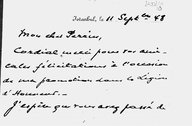 Istanbul, le 11 Septbre 48
Mon cher Perrier,
Cordial merci pour vos ami-
cales félicitations à l'occasion
de ma promotion dans la Légion
d'Honneur.
J'espère que vous avez passé de